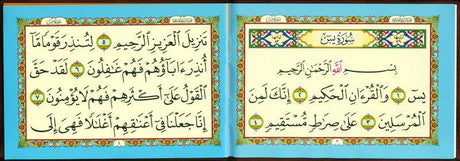 سُورَةُ يسٓ
بِسْمِ اللَّهِ الرَّحْمَٰنِ الرَّحِيمِ
يسٓ ١ وَالْقُرْءَانِ الْحَكِيمِ ٢ إِنَّكَ لَمِنَ
الْمُرْسَلِينَ ٣ عَلَىٰ صِرَاطٍ مُّسْتَقِيمٍ ٤
تَنزِيلَ الْعَزِيزِ الرَّحِيمِ ٥ لِتُنذِرَ قَوْمًا مَّا
أُنذِرَ ءَابَاؤُهُمْ فَهُمْ غَافِلُونَ ٦ لَقَدْ حَقَّ
الْقَوْلُ عَلَىٰ أَكْثَرِهِمْ فَهُمْ لَا يُؤْمِنُونَ ٧
إِنَّا جَعَلْنَا فِي أَعْنَاقِهِمْ أَغْلَالًا فَهِيَ إِلَى